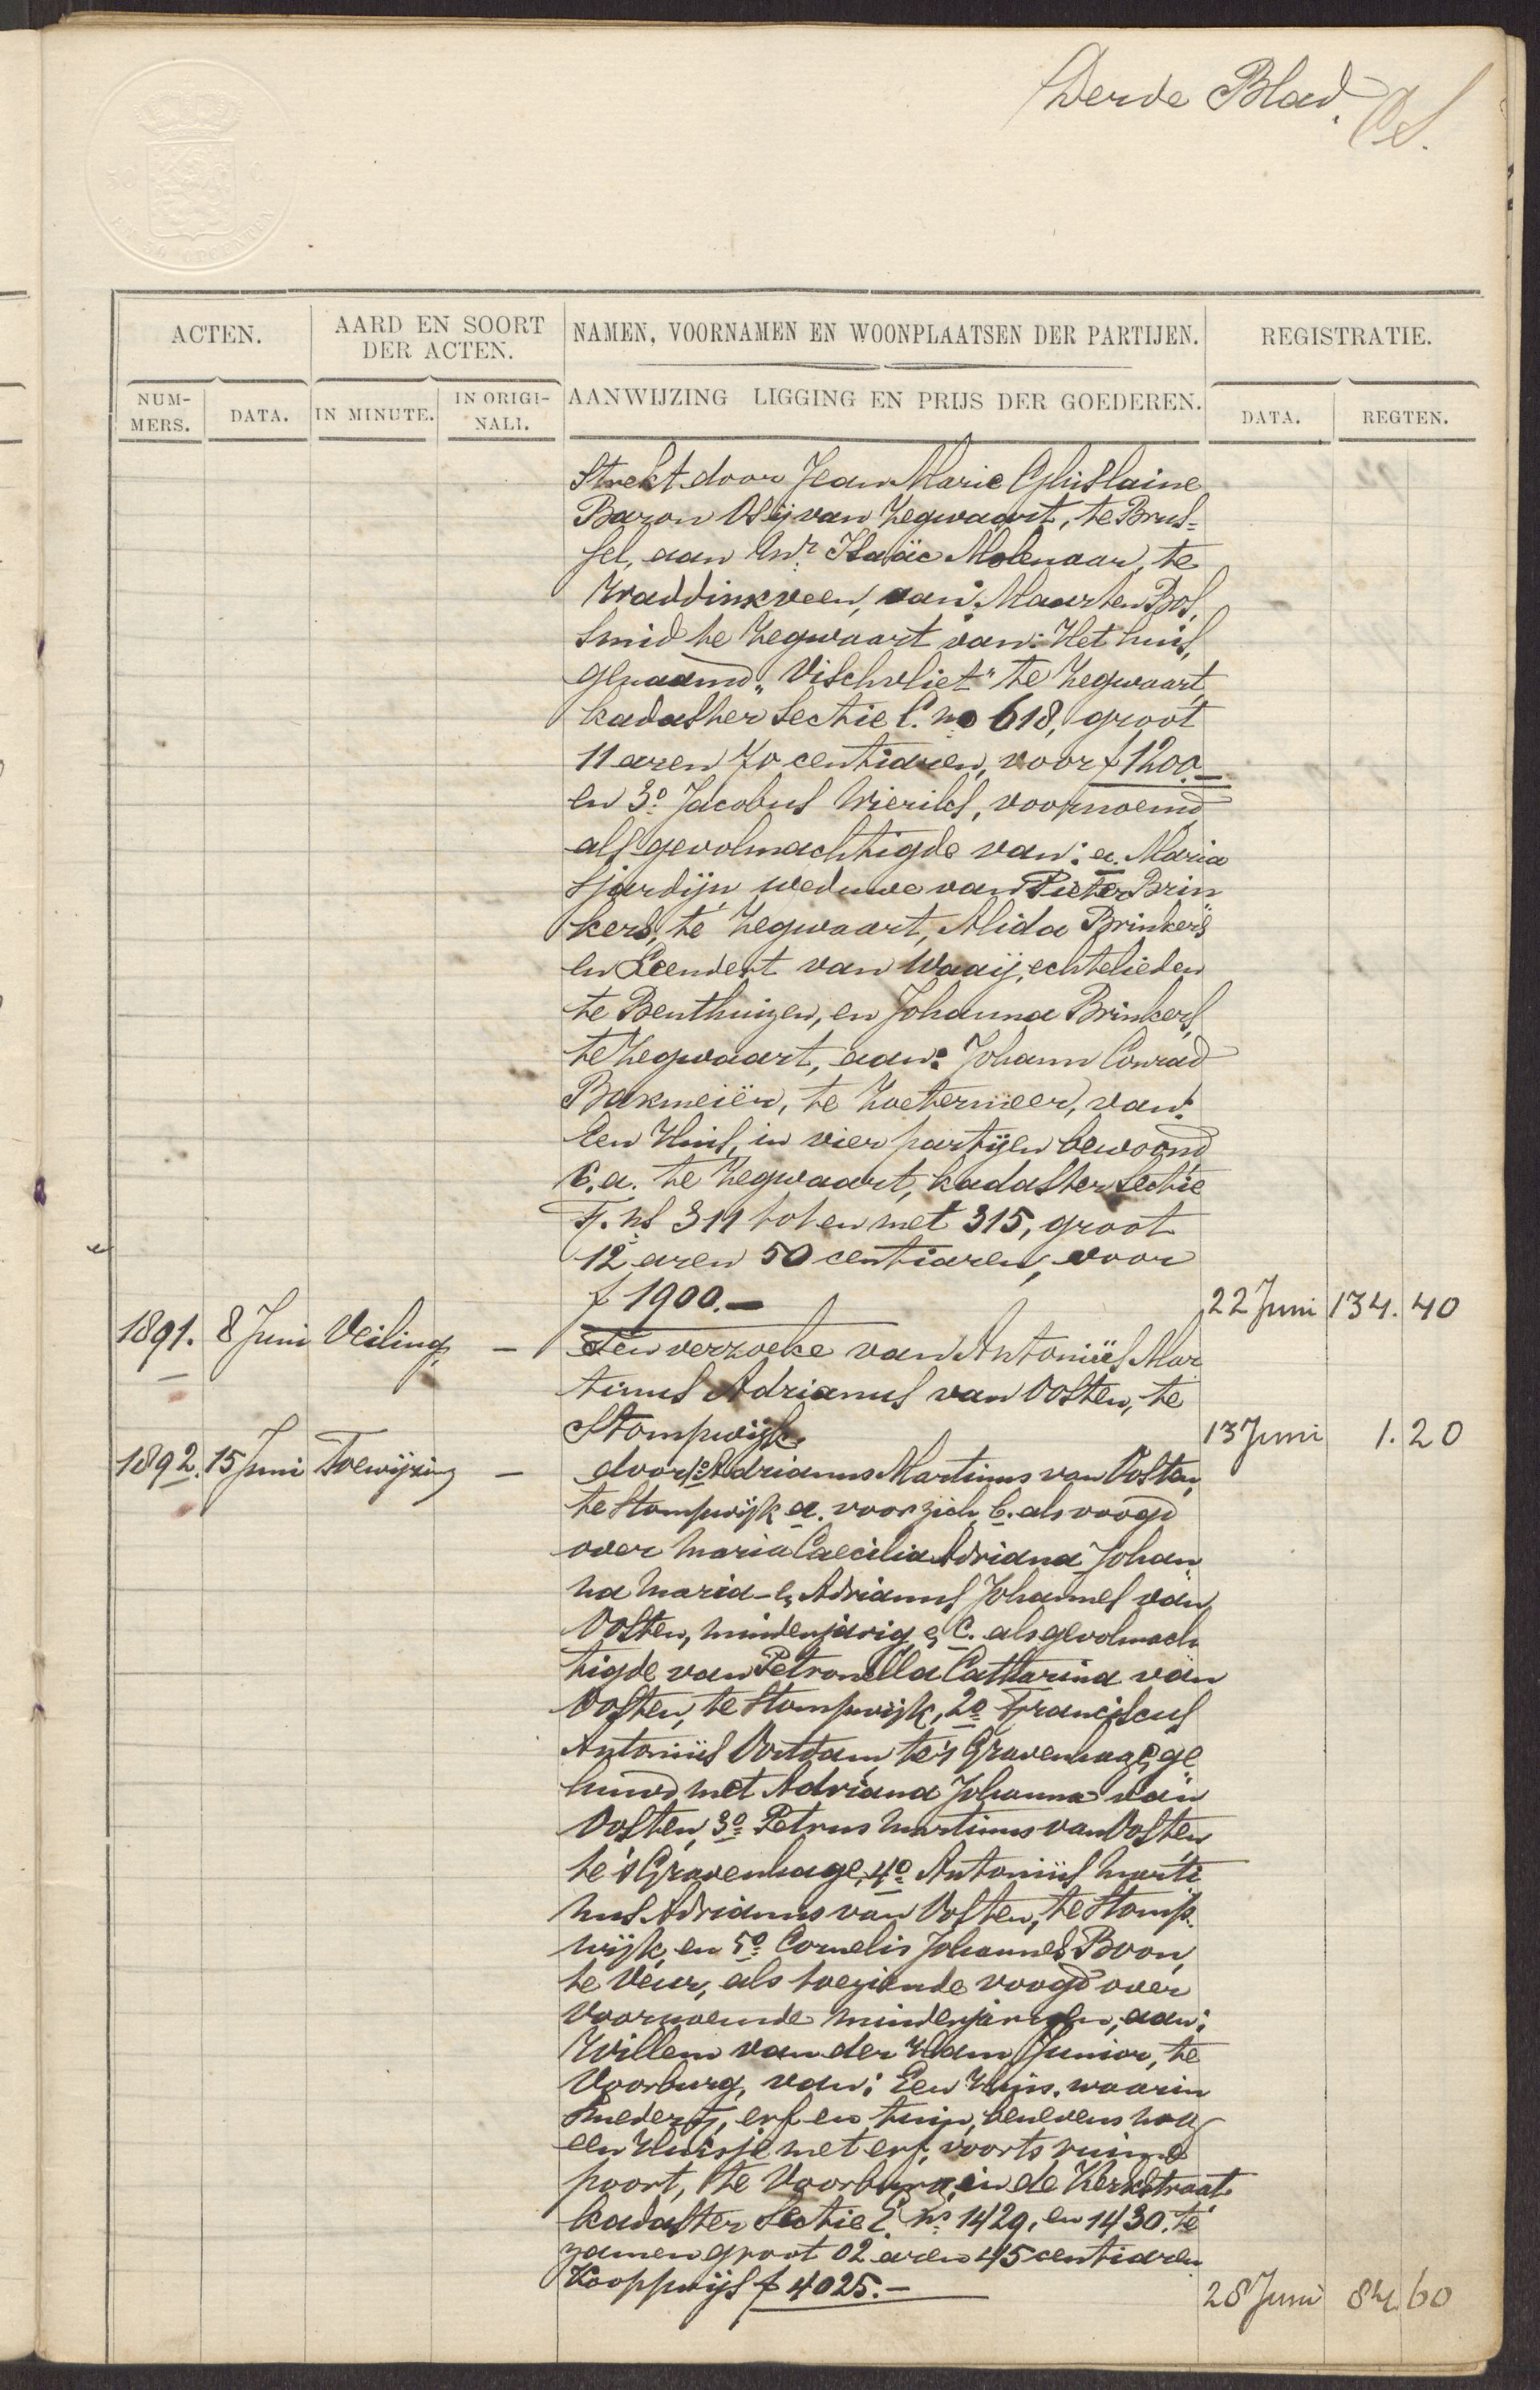 Derde Blad.
ACTEN.
AARD EN SOORT
DER ACTEN.
NAMEN, VOORNAMEN EN WOONPLAATSEN DER PARTIJEN.
REGISTRATIE.
NUM-
MERS.
DATA.
IN MINUTE.
IN ORIGI-
NALI.
AANWIJZING LIGGING EN PRIJS DER GOEDEREN.
DATA.
REGTEN.
strekt door Jean Marie Ghislaine
Baron Osij van Zegwaart, te Brus=
sel, aan Isaäc Molenaar, te
Waddinxveen, aan: Maarten Bos,
smid te Zegwaart van: Het huis,
genaamd "Vischvliet" te Zegwaart,
kadaster Sectie C. no 618, groot
11 aren 70 centiaren, voor f 1200.-
en 3o. Jacobus Wierils, voornoemd
als gevolmachtigde van: a. Maria
Sjardijn, weduwe van Pieter Brin
kers, te Zegwaart, Alida Brinkers
en Leendert van Waaij, echtelieden
te Benthuizen, en Johanna Brinkers,
te Zegwaart, aan: Johann Conrad
Bakmeiër, te Zoetermeer, van:
Een Huis, in vier partijen bewoond
c.a. te Zegwaart, kadaster Sectie
F. ns 311 tot en met 315, groot
12 aren 50 centiaren, voor
f 1900.- 22 Juni 134.40
1891. 8 Juni Veiling - Ten verzoeke van Antoniüs Mar
tinus Adrianus van Oosten, te
Stompwijk. 13 Juni 1.20
1892. 15 Juni Toewijzing - door 1o Adrianus Martinus van Oosten,
te Stompwijk a. voor zich, b. als voogd
over Maria Caecilia Adriana Johan
na Maria - & Adrianus Johannes van
Oosten, minderjarig & c. als gevolmach
tigde van Petronella Catharina van
Oosten, te Stompwijk, 2o Franciscus
Antoniüs Oortdam, te 's Gravenhage, ge
huwd met Adriana Johanna van
Oosten, 3o Petrus Martinus van Oosten
te 's Gravenhage, 4o Antoniüs Marti
nus Adrianus van Oosten, te Stomp
wijk, en 5o Cornelis Johannes Boon,
te Veur, als toeziende voogd over
voornoemde minderjarigen, aan:
Willem van der Ham Junior, te
Voorburg, van: Een Huis, waarin
smederij, erf en tuin, benevens nog
een Huisje met erf, voorts ruime
poort, te Voorburg, in de Kerkstraat
kadaster Sectie E. ns 1429, en 1430. te
zamen groot 02 aren 45 centiaren
Koopprijs f 4025.- 28 Juni 84.60